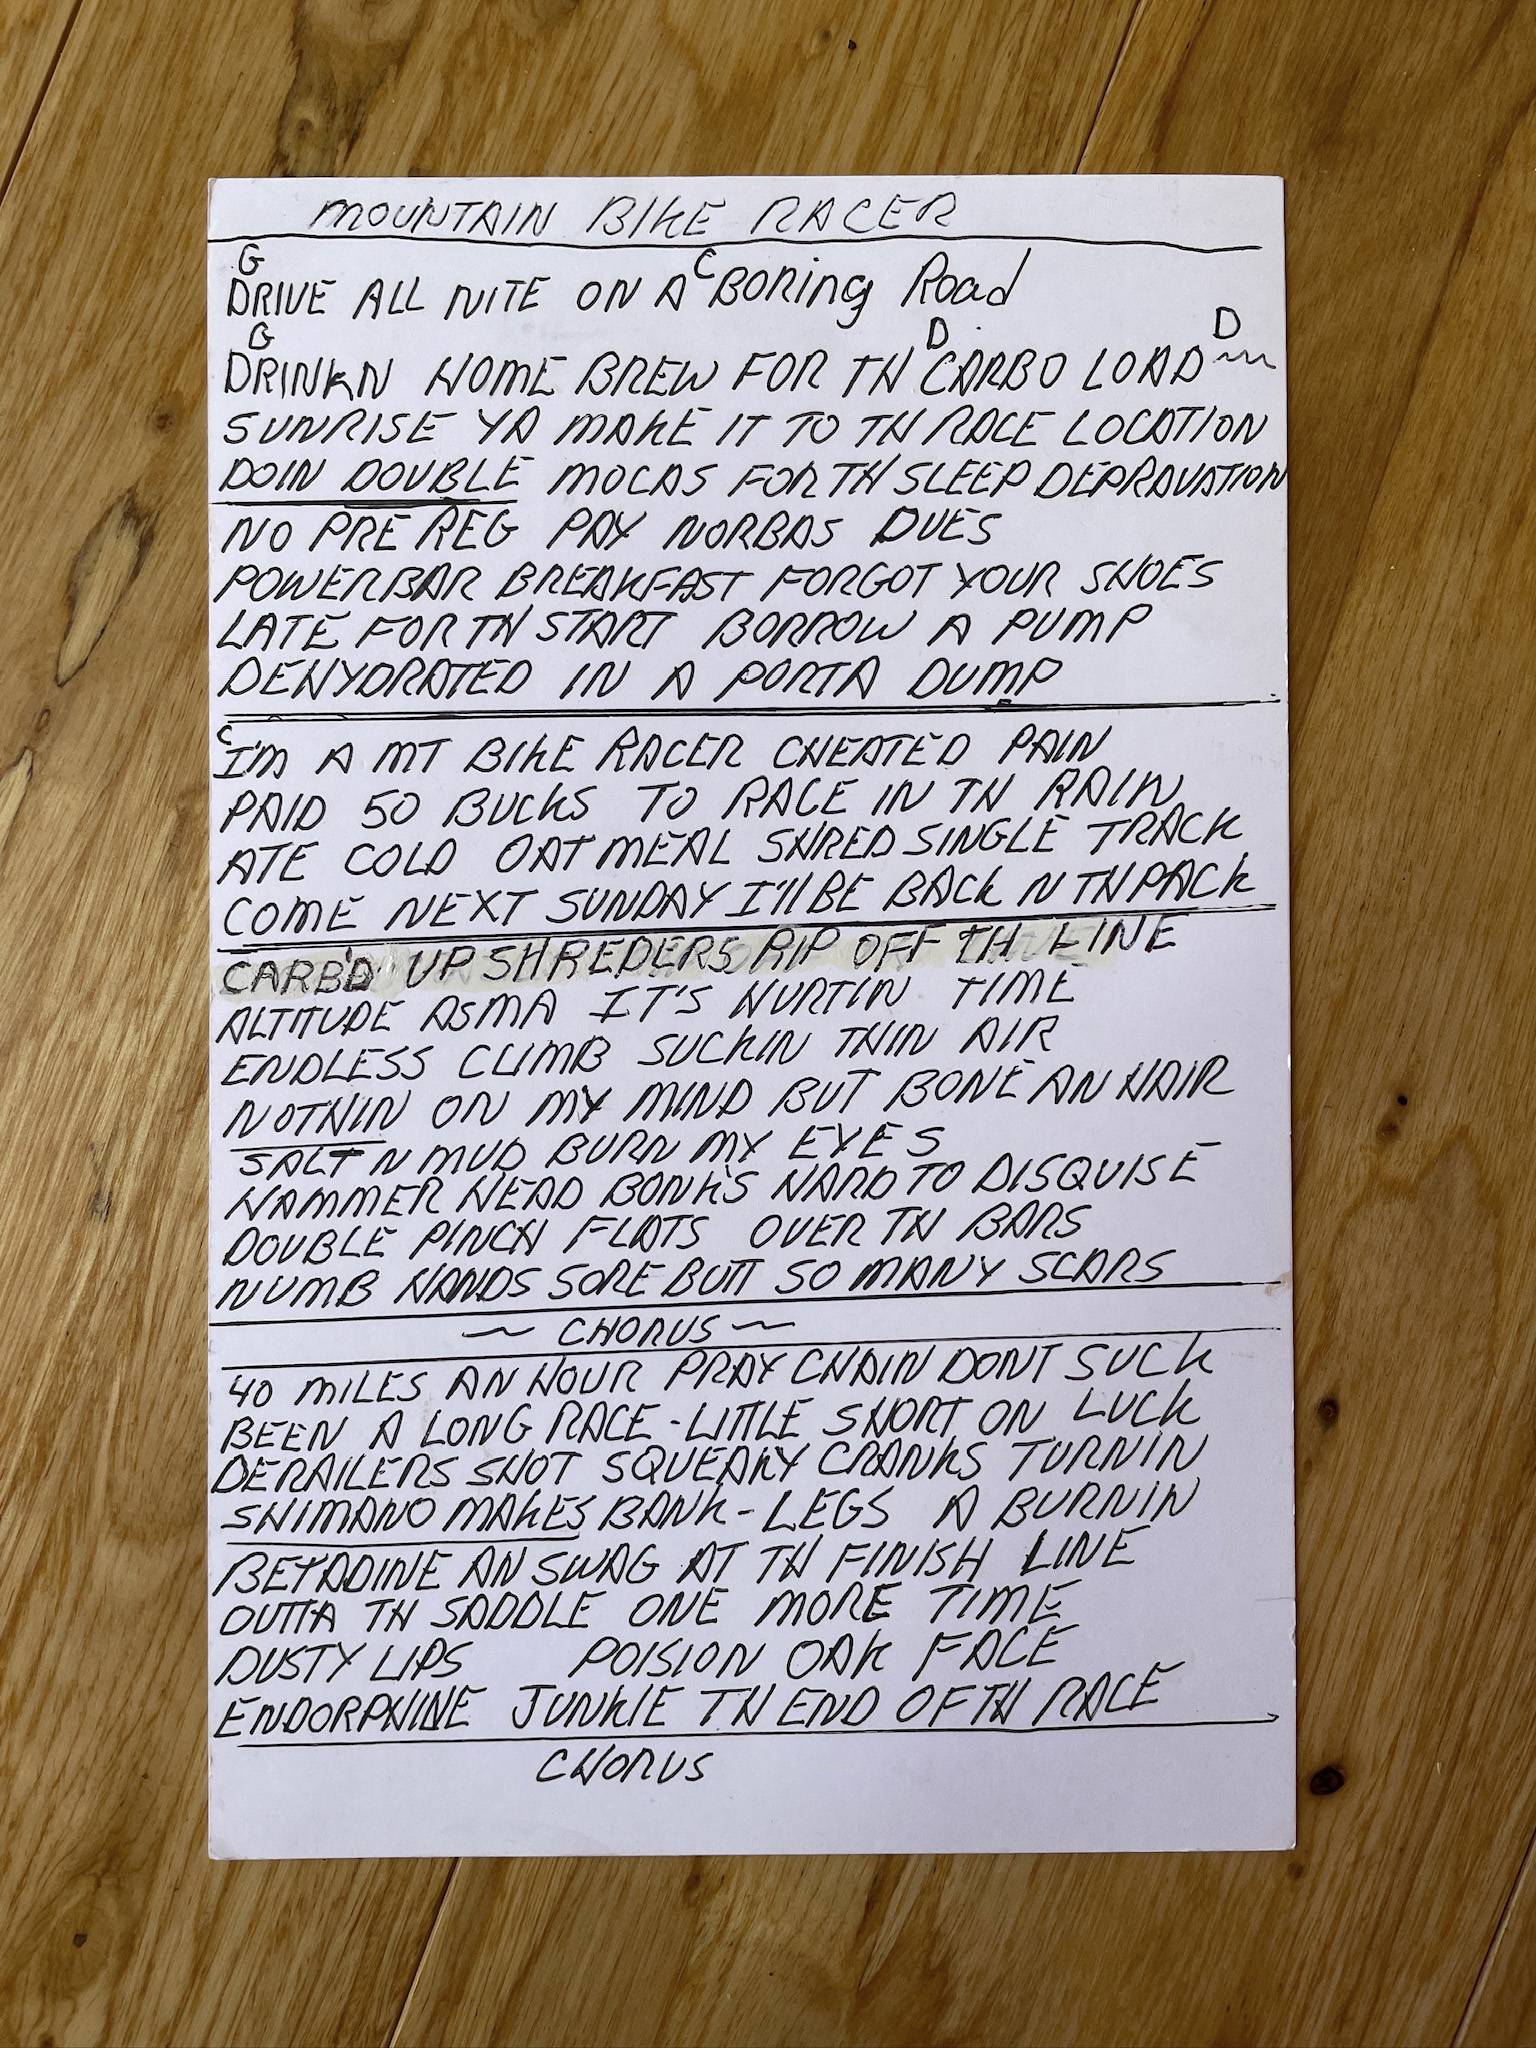 MOUNTAIN BIKE RACER
G C
DRIVE ALL NITE ON A BORing Road
G D D
DRINKN HOME BREW FOR TH CARBO LOAD ~~
SUNRISE YA MAKE IT TO TH RACE LOCATION
DOIN DOUBLE MOCAS FOR TH SLEEP DEPRAVATION
NO PRE REG PAY NORBAS DUES
POWERBAR BREAKFAST FORGOT YOUR SHOES
LATE FOR TH START BORROW A PUMP
DEHYDRATED IN A PORTA DUMP
C
I'M A MT BIKE RACER CHEATED PAIN
PAID 50 BUCKS TO RACE IN TH RAIN
ATE COLD OATMEAL SHRED SINGLE TRACK
COME NEXT SUNDAY I'll BE BACK N TH PACK
CARB'D UP SHREDERS RIP OFF TH LINE
ALTITUDE ASMA IT'S HURTIN TIME
ENDLESS CLIMB SUCKIN THIN AIR
NOTHIN ON MY MIND BUT BONE AN HAIR
SALT N MUD BURN MY EYES
HAMMER HEAD BONK'S HARD TO DISQUISE
DOUBLE PINCH FLATS OVER TH BARS
NUMB HANDS SORE BUTT SO MANY SCARS
~ CHORUS ~
40 MILES AN HOUR PRAY CHAIN DONT SUCK
BEEN A LONG RACE - LITTLE SHORT ON LUCK
DERAILERS SHOT SQUEAKY CRANKS TURNIN
SHIMANO MAKES BANK - LEGS A BURNIN
BETADINE AN SWAG AT TH FINISH LINE
OUTTA TH SADDLE ONE MORE TIME
DUSTY LIPS POISION OAK FACE
ENDORPHINE JUNKIE TH END OF TH RACE
CHORUS